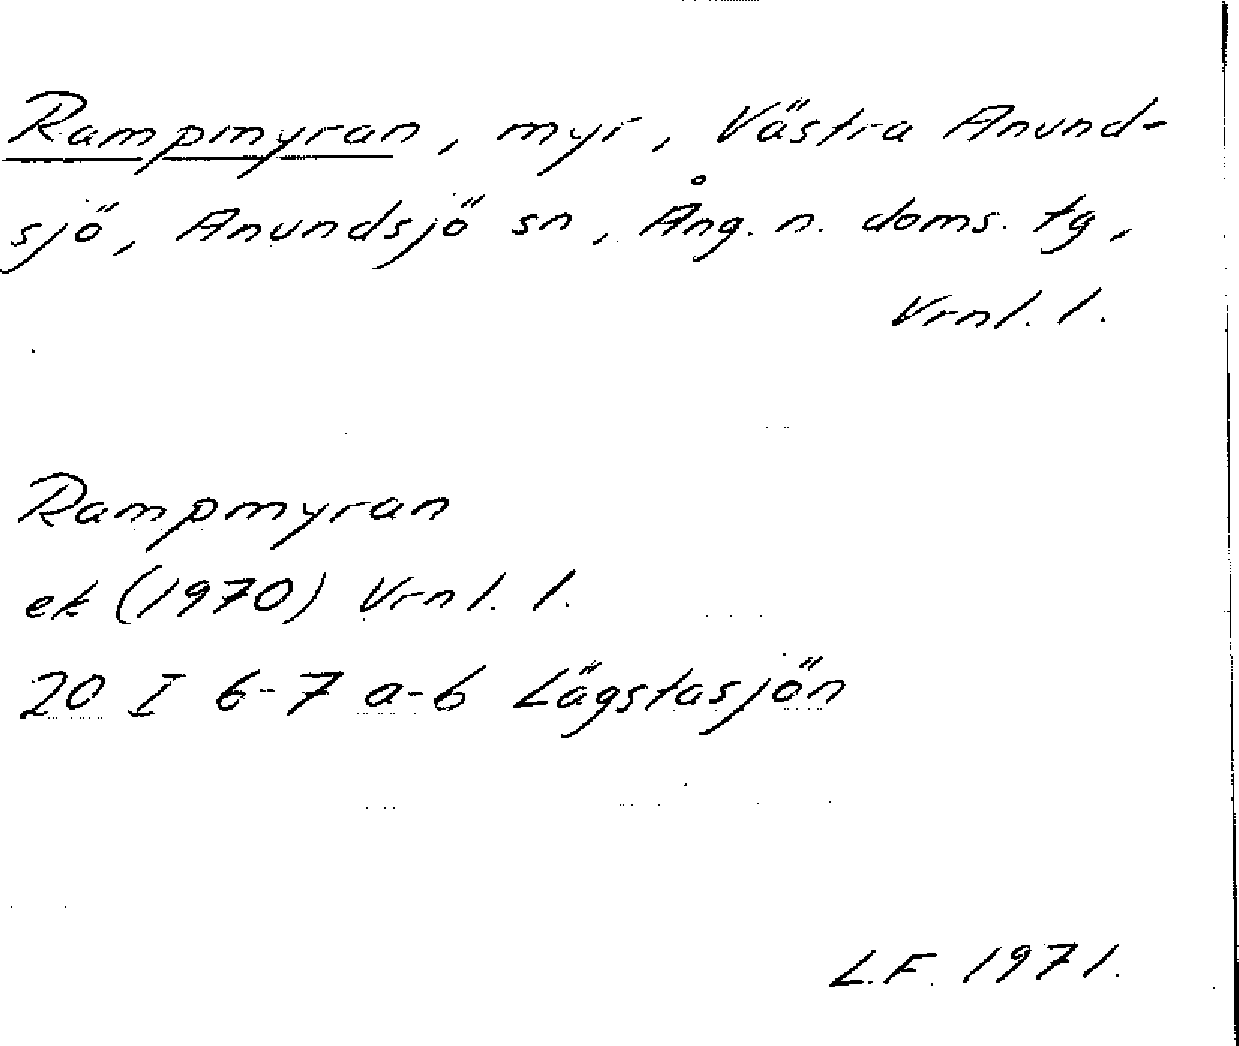 Rampmyran, myr, Västra Anund-
sjö, Anundsjö sn, Ång. n. doms. tg,
Vrnl. l.
Rampmyran
ek (1970) Vrnl. l.
20 I 6-7 a-b Lägstasjön
L.F. 1971.